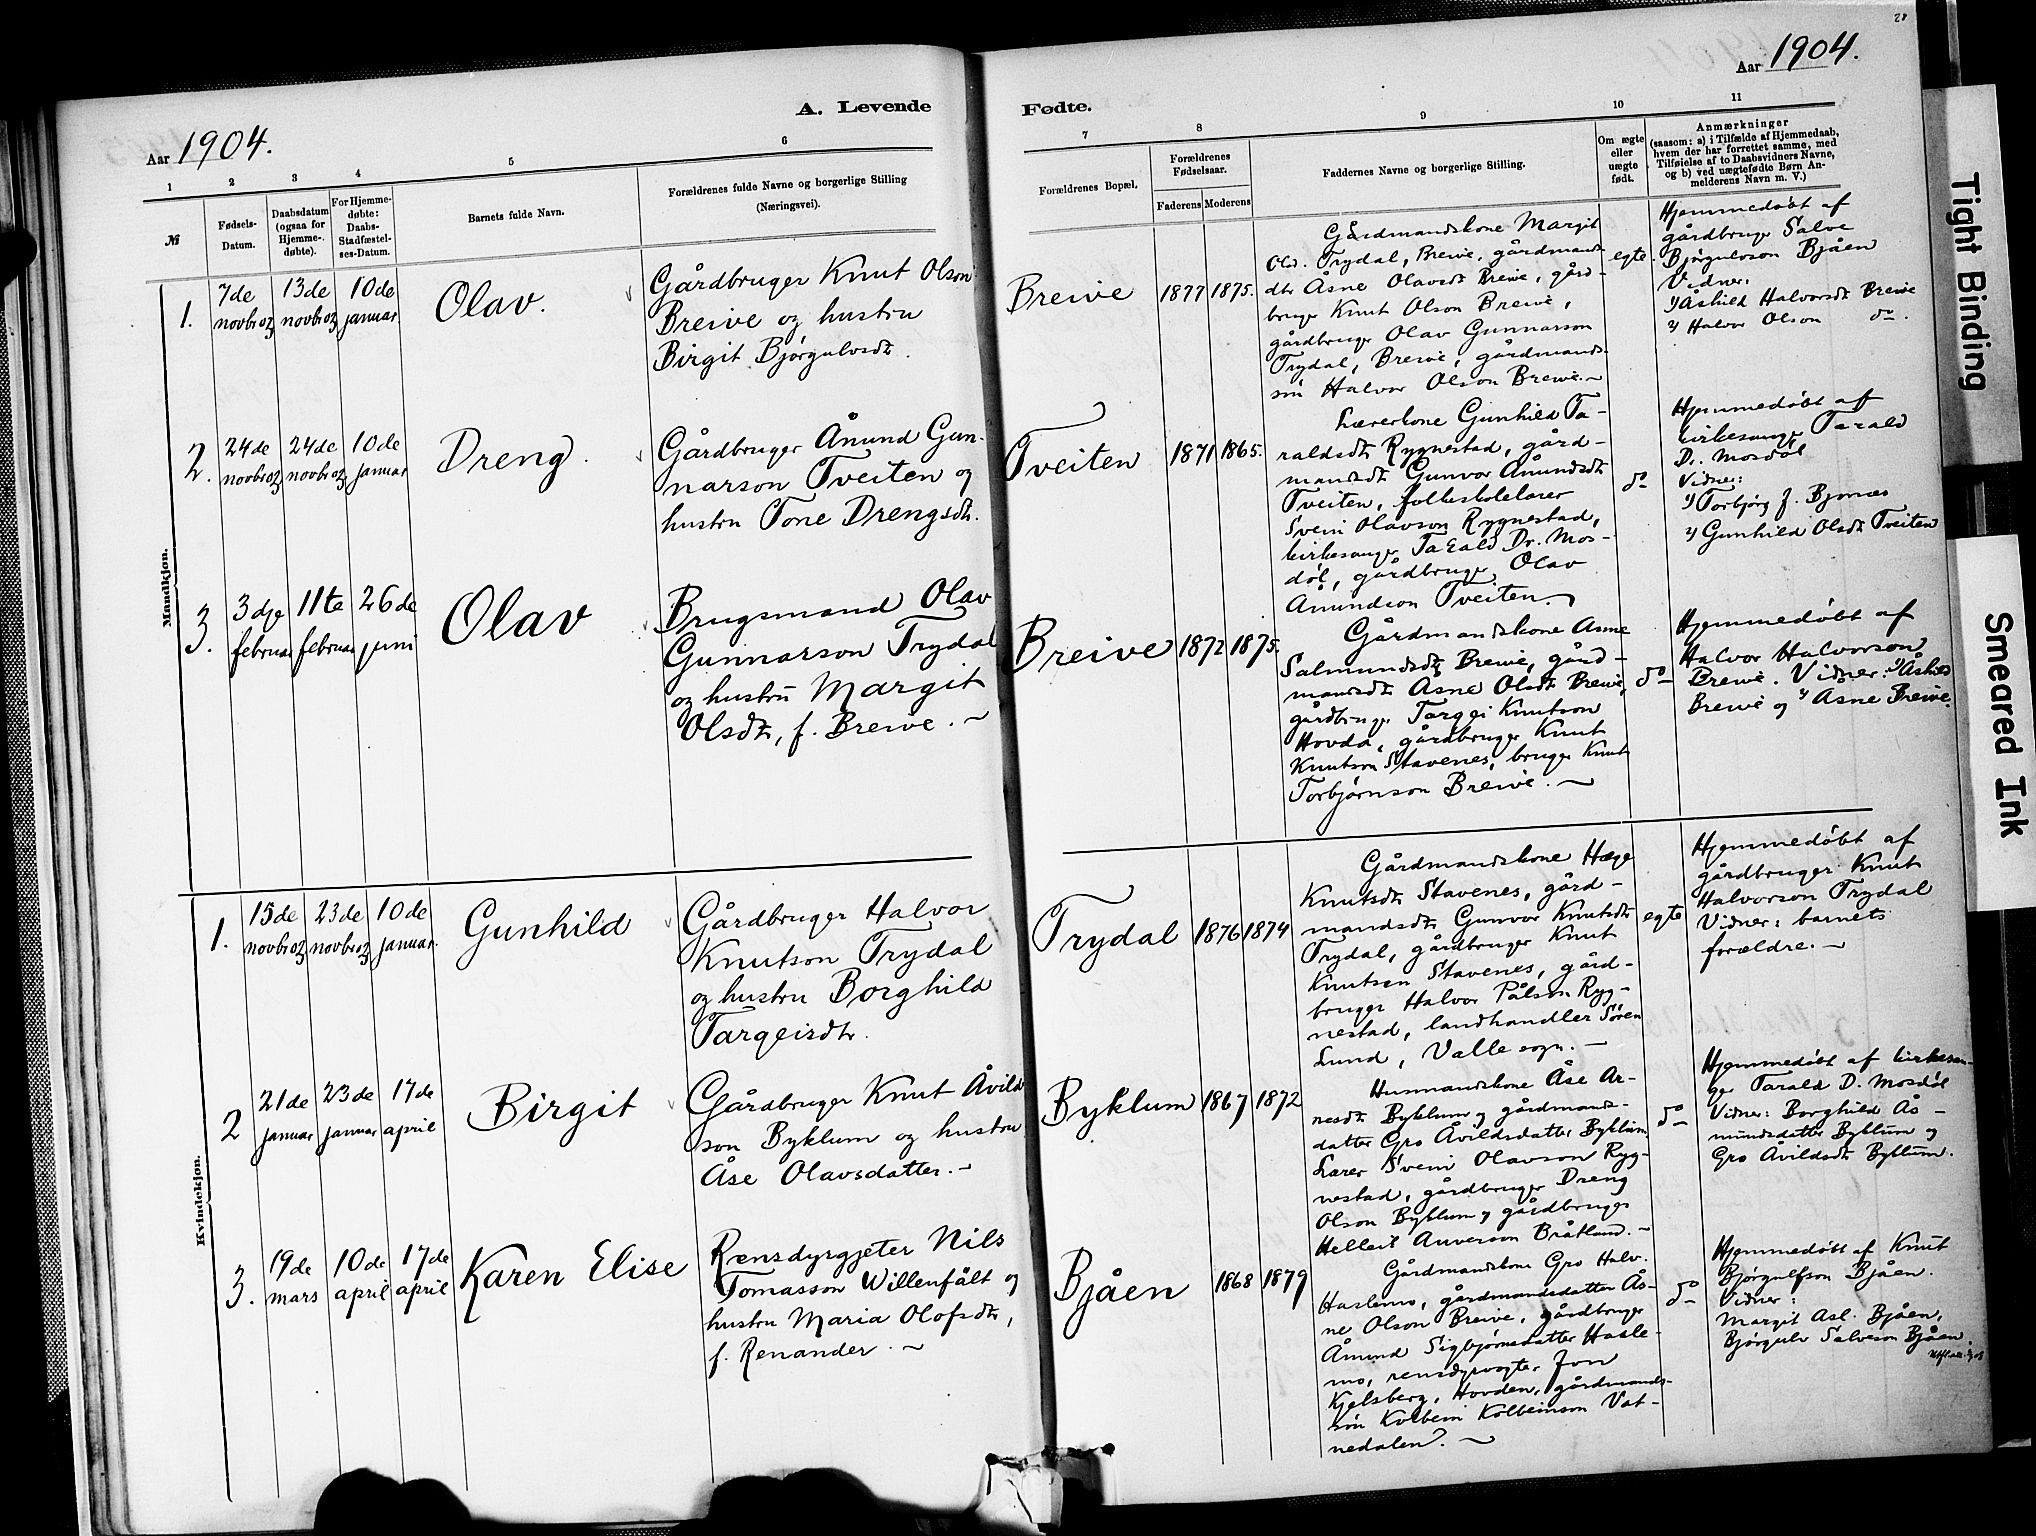 28
Aar 1904.
A. Levende
Fødte.
Aar 1904.
1
2
3
4
5
6
7
8
9
10
11
№
Fødsels-
Datum.
Daabsdatum
(ogsaa for
Hjemme-
døbte).
For Hjemme-
døbte:
Daabs-
Stadfæstel-
ses-Datum.
Barnets fulde Navn.
Forældrenes fulde Navne og borgerlige Stilling
(Næringsvei).
Forældrenes Bopæl.
Forældrenes
Fødselsaar.
Faderens
Moderens
Faddernes Navne og borgerlige Stilling.
Om ægte
eller
uægte
født.
Anmærkninger
(saasom: a) i Tilfælde af Hjemmedaab,
hvem der har forrettet samme, med
Tilføielse af to Daabsvidners Navne,
og b) ved uægtefødte Børn An-
melderens Navn m. V.)
Mandkjøn.
1.
7de
novbr 03
13de
novbr 03
10de
januar.
Olav.
Gårdbruger Knut Olson
Breive og hustru
Birgit Bjørgulvsdt.
Breive
1877
1875.
Gårdmandskone Margit
Old. Trydal, Breive, gårdmands-
dtr Åsne Olavsdt Breive, gård-
bruger Knut Olson Breive,
gårdbruger Olav Gunnarson
Trydal, Breive, gårdmands-
søn Halvor Olson Breive.—
egte
Hjemmedøbt af
gårdbruger Salve
Bjørgulvson Bjåen
Vidner:
1) Åshild Halvorsdt Breive
2) Halvor Olson do.
2.
24de
novbr 03
24de
novbr 03
10de
januar
Dreng.
Gårdbruger Ånund Gun-
narson Tveiten og
hustru Tone Drengsdtr.
Tveiten
1871
1865.
Lærerkone Gunhild Ta-
raldsdt Rygnestad, gård-
mandsdt Gunvor Ånundsdt
Tveiten, folkeskolelærer
Svein Olavson Rygnestad,
kirkesanger Tarald Dr. Mos-
døl, gårdbruger Olav
Ånundson Tveiten.
do
Hjemmedøbt af
kirkesanger Tarald
Dr. Mosdøl
Vidner:
1) Torbjørg f. Bjornes
2) Gunhild Olsdt Tveiten
3.
3dje
februar
11te
februar
26de
juni
Olav
Brugsmand Olav
Gunnarson Trydal
og hustru Margit
Olsdtr, f. Breive.—
Breive
1872
1875.
Gårdmandskone Åsne
Salmundsdt Breive, gård-
mandsdt Åsne Olsdt Breive,
gårdbruger Targei Knutson
Hovda, gårdbruger Knut
Knutson Stavenes, bruger Knut
Torbjørnson Breive.—
do
Hjemmedøbt af
Halvor Halvorson
Breive. Vidner: 1) Åshild
Breive og 2) Åsne Breive.
Kvindekjøn.
1.
15de
novbr 03
23de
novbr 03
10de
januar.
Gunhild
Gårdbruger Halvor
Knutson Trydal
og hustru Borghild
Targeisdtr.
Trydal
1876
1874
Gårdmandskone Hæge
Knutsdt Stavenes, gård-
mandsdt Gunvor Knutsdt
Trydal, gårdbruger Knut
Knutsen Stavenes, gård-
bruger Halvor Pålson Ryg-
nestad, landhandler Søren
Lund, Valle sogn.—
egte
Hjemmedøbt af
gårdbruger Knut
Halvorson Trydal
Vidner: barnets
forældre.—
2
21de
januar
23de
januar
17de
april
Birgit
Gårdbruger Knut Åvild-
son Byklum og hustru
Åse Olavsdatter.—
Byklum
1867
1872
Husmandskone Åse Ar-
nesdt Byklum og gårdmands-
datter Gro Åvildsdatter Byklum,
Lærer Svein Olavson Ryg-
nestad, gårdbruger Dreng
Olson Byklum og gårdbruger
Helleik Anverson Bråtland.—
do
Hjemmedøbt af kirkesan-
ger Tarald D. Mosdøl
Vidner: Borghild Ås-
mundsdatter Byklum og
Gro Åvildsdt Byklum.
3.
19de
mars
10de
april
17de
april
Karen Elise
Rensdyrgjeter Nils
Tomasson Willenfält og
hustru Maria Olofsdtr,
f. Renander.—
Bjåen
1868
1879
Gårdmandskone Gro Halv.
Haslemo, gårdmandsdatter Ås-
ne Olson Breive, gårdbruger
Ånund Sigbjørnsdatter Hasle-
mo, rensdyrvogter Jon
Kjelsberg, Hovden, gårdmands-
søn Kolbein Kolbeinson Vat-
nedalen.—
do
Hjemmedøbt af Knut
Bjørgulfson Bjåen.
Vidner:
Margit Asl. Bjåen,
Bjørgulv Salveson Bjåen
Tight Binding
Smeared Ink